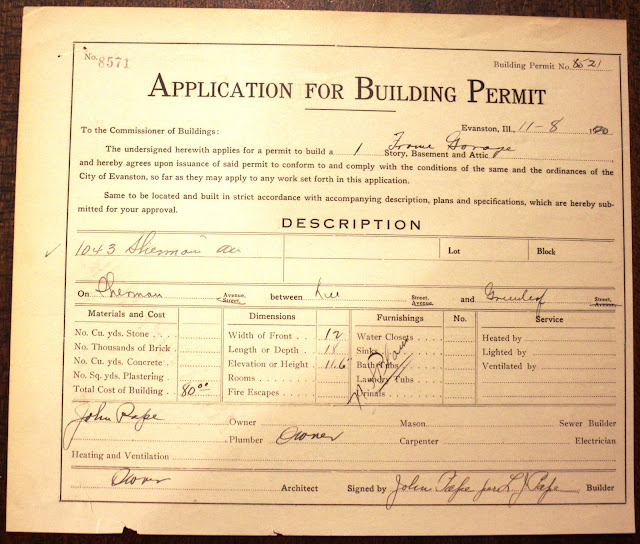 No. 8571
Building Permit No. 8521
APPLICATION FOR BUILDING PERMIT
Evanston, Ill., 11-8 1920
To the Commissioner of Buildings:
The undersigned herewith applies for a permit to build a 1 Story, Basement and Attic Frame Garage
and hereby agrees upon issuance of said permit to conform to and comply with the conditions of the same and the ordinances of the
City of Evanston, so far as they may apply to any work set forth in this application.
Same to be located and built in strict accordance with accompanying description, plans and specifications, which are hereby sub-
mitted for your approval.
DESCRIPTION
✓ 1043 Sherman av Lot Block
On Sherman Avenue, Street, between Lee Street, Avenue, and Greenleaf Street, Avenue,
Materials and Cost Dimensions Furnishings No. Service
No. Cu. yds. Stone Width of Front 12 Water Closets Heated by
No. Thousands of Brick Length or Depth 18 Sinks Lighted by
No. Cu. yds. Concrete Elevation or Height 11.6" Bath Tubs Ventilated by
No. Sq. yds. Plastering Rooms Laundry Tubs
Total Cost of Building 80.00 Fire Escapes Urinals
John Pape Owner Mason Sewer Builder
Plumber Owner Carpenter Electrician
Heating and Ventilation
Owner Architect Signed by John Pape per L J Pape Builder